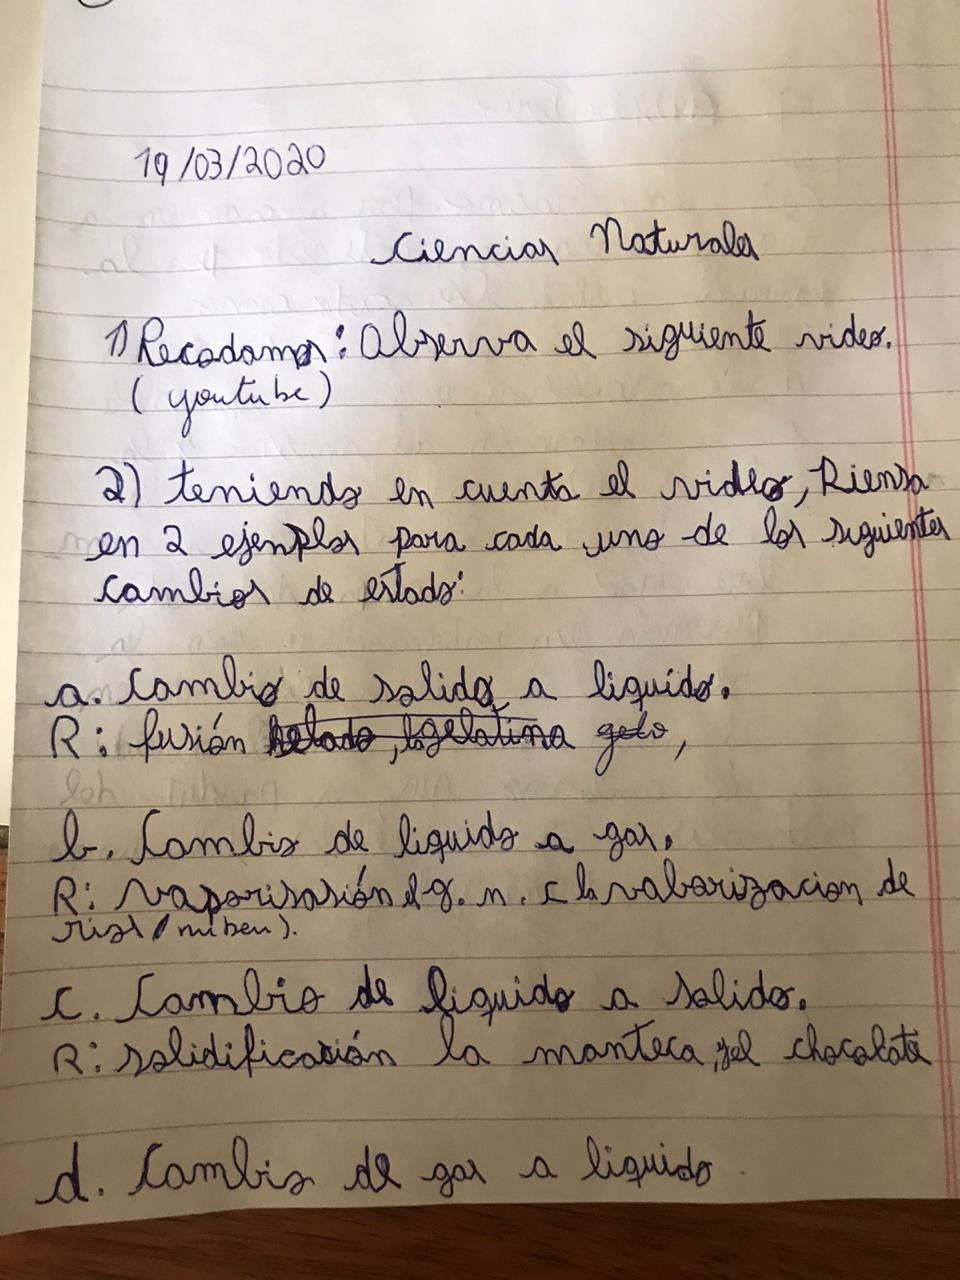 19/03/2020
Ciencias Naturales
1) Recodamos: Observa el siguiente video.
(youtube)
2) teniendo en cuenta el video, Piensa
en 2 ejemplos para cada uno de los siguientes
cambios de estado:
a. Cambio de solido a liquido.
R: fusión helado, la gelatina gelo,
b. Cambio de liquido a gas.
R: vaporisasión g. n. c la valoarizacion de
c. Cambio de liquido a solido.
R: solidificación la manteca, y el chocolate
d. Cambio de gas a liquido